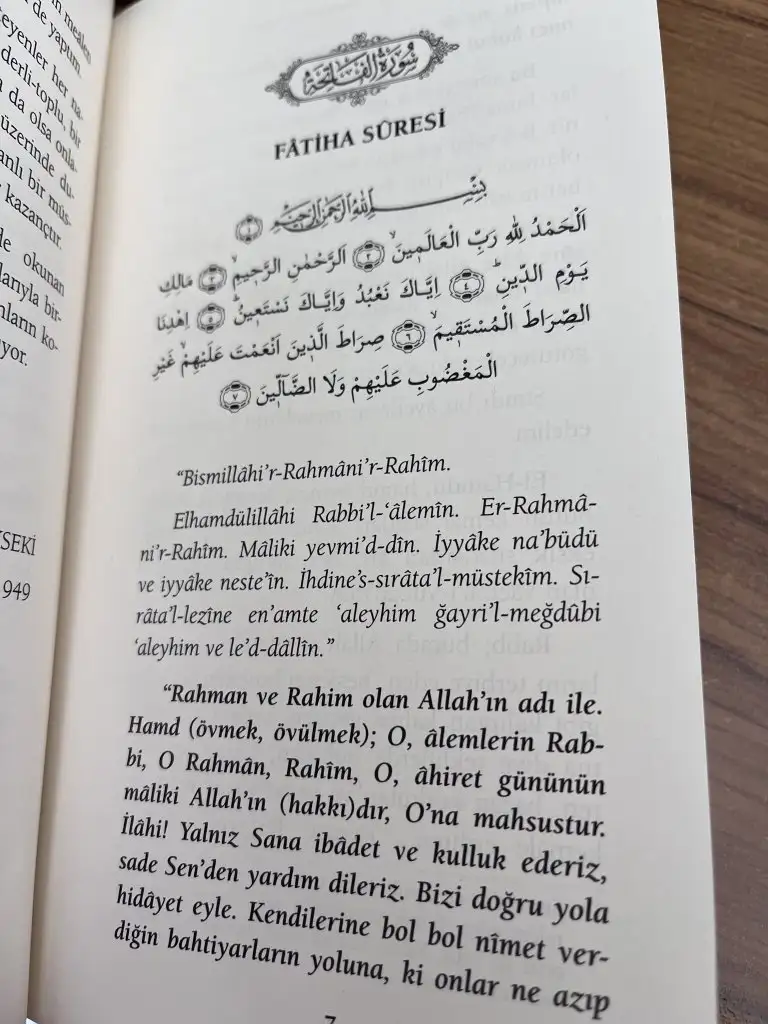 n mealen
de yaptım.
eyenler her na-
derli-toplu, bir
a da olsa onla-
üzerinde du-
anlı bir müs-
kazançtır.
de okunan
larıyla bir-
nların ko-
yor.
SEKİ
949
سُورَةُ الْفَاتِحَةِ
FÂTİHA SÛRESİ
بِسْمِ اللّٰهِ الرَّحْمٰنِ الرَّحِيمِ ﴿١﴾
اَلْحَمْدُ لِلّٰهِ رَبِّ الْعَالَمِينَۙ ﴿٢﴾ اَلرَّحْمٰنِ الرَّحِيمِۙ ﴿٣﴾ مَالِكِ
يَوْمِ الدِّينِۜ ﴿٤﴾ اِيَّاكَ نَعْبُدُ وَاِيَّاكَ نَسْتَعِينُۜ ﴿٥﴾ اِهْدِنَا
الصِّرَاطَ الْمُسْتَقِيمَۙ ﴿٦﴾ صِرَاطَ الَّذِينَ اَنْعَمْتَ عَلَيْهِمْۙ غَيْرِ
الْمَغْضُوبِ عَلَيْهِمْ وَلَا الضَّٓالِّينَ ﴿٧﴾
“Bismillâhi’r-Rahmâni’r-Rahîm.
Elhamdülillâhi Rabbi’l-‘âlemîn. Er-Rahmâ-
ni’r-Rahîm. Mâliki yevmi’d-dîn. İyyâke na’büdü
ve iyyâke neste’în. İhdine’s-sırâta’l-müstekîm. Sı-
râta’l-lezîne en’amte ‘aleyhim ğayri’l-meğdûbi
‘aleyhim ve le’d-dâllîn.”
“Rahman ve Rahim olan Allah’ın adı ile.
Hamd (övmek, övülmek); O, âlemlerin Rab-
bi, O Rahmân, Rahîm, O, âhiret gününün
mâliki Allah’ın (hakkı)dır, O’na mahsustur.
İlâhi! Yalnız Sana ibâdet ve kulluk ederiz,
sade Sen’den yardım dileriz. Bizi doğru yola
hidâyet eyle. Kendilerine bol bol nîmet ver-
diğin bahtiyarların yoluna, ki onlar ne azıp
7